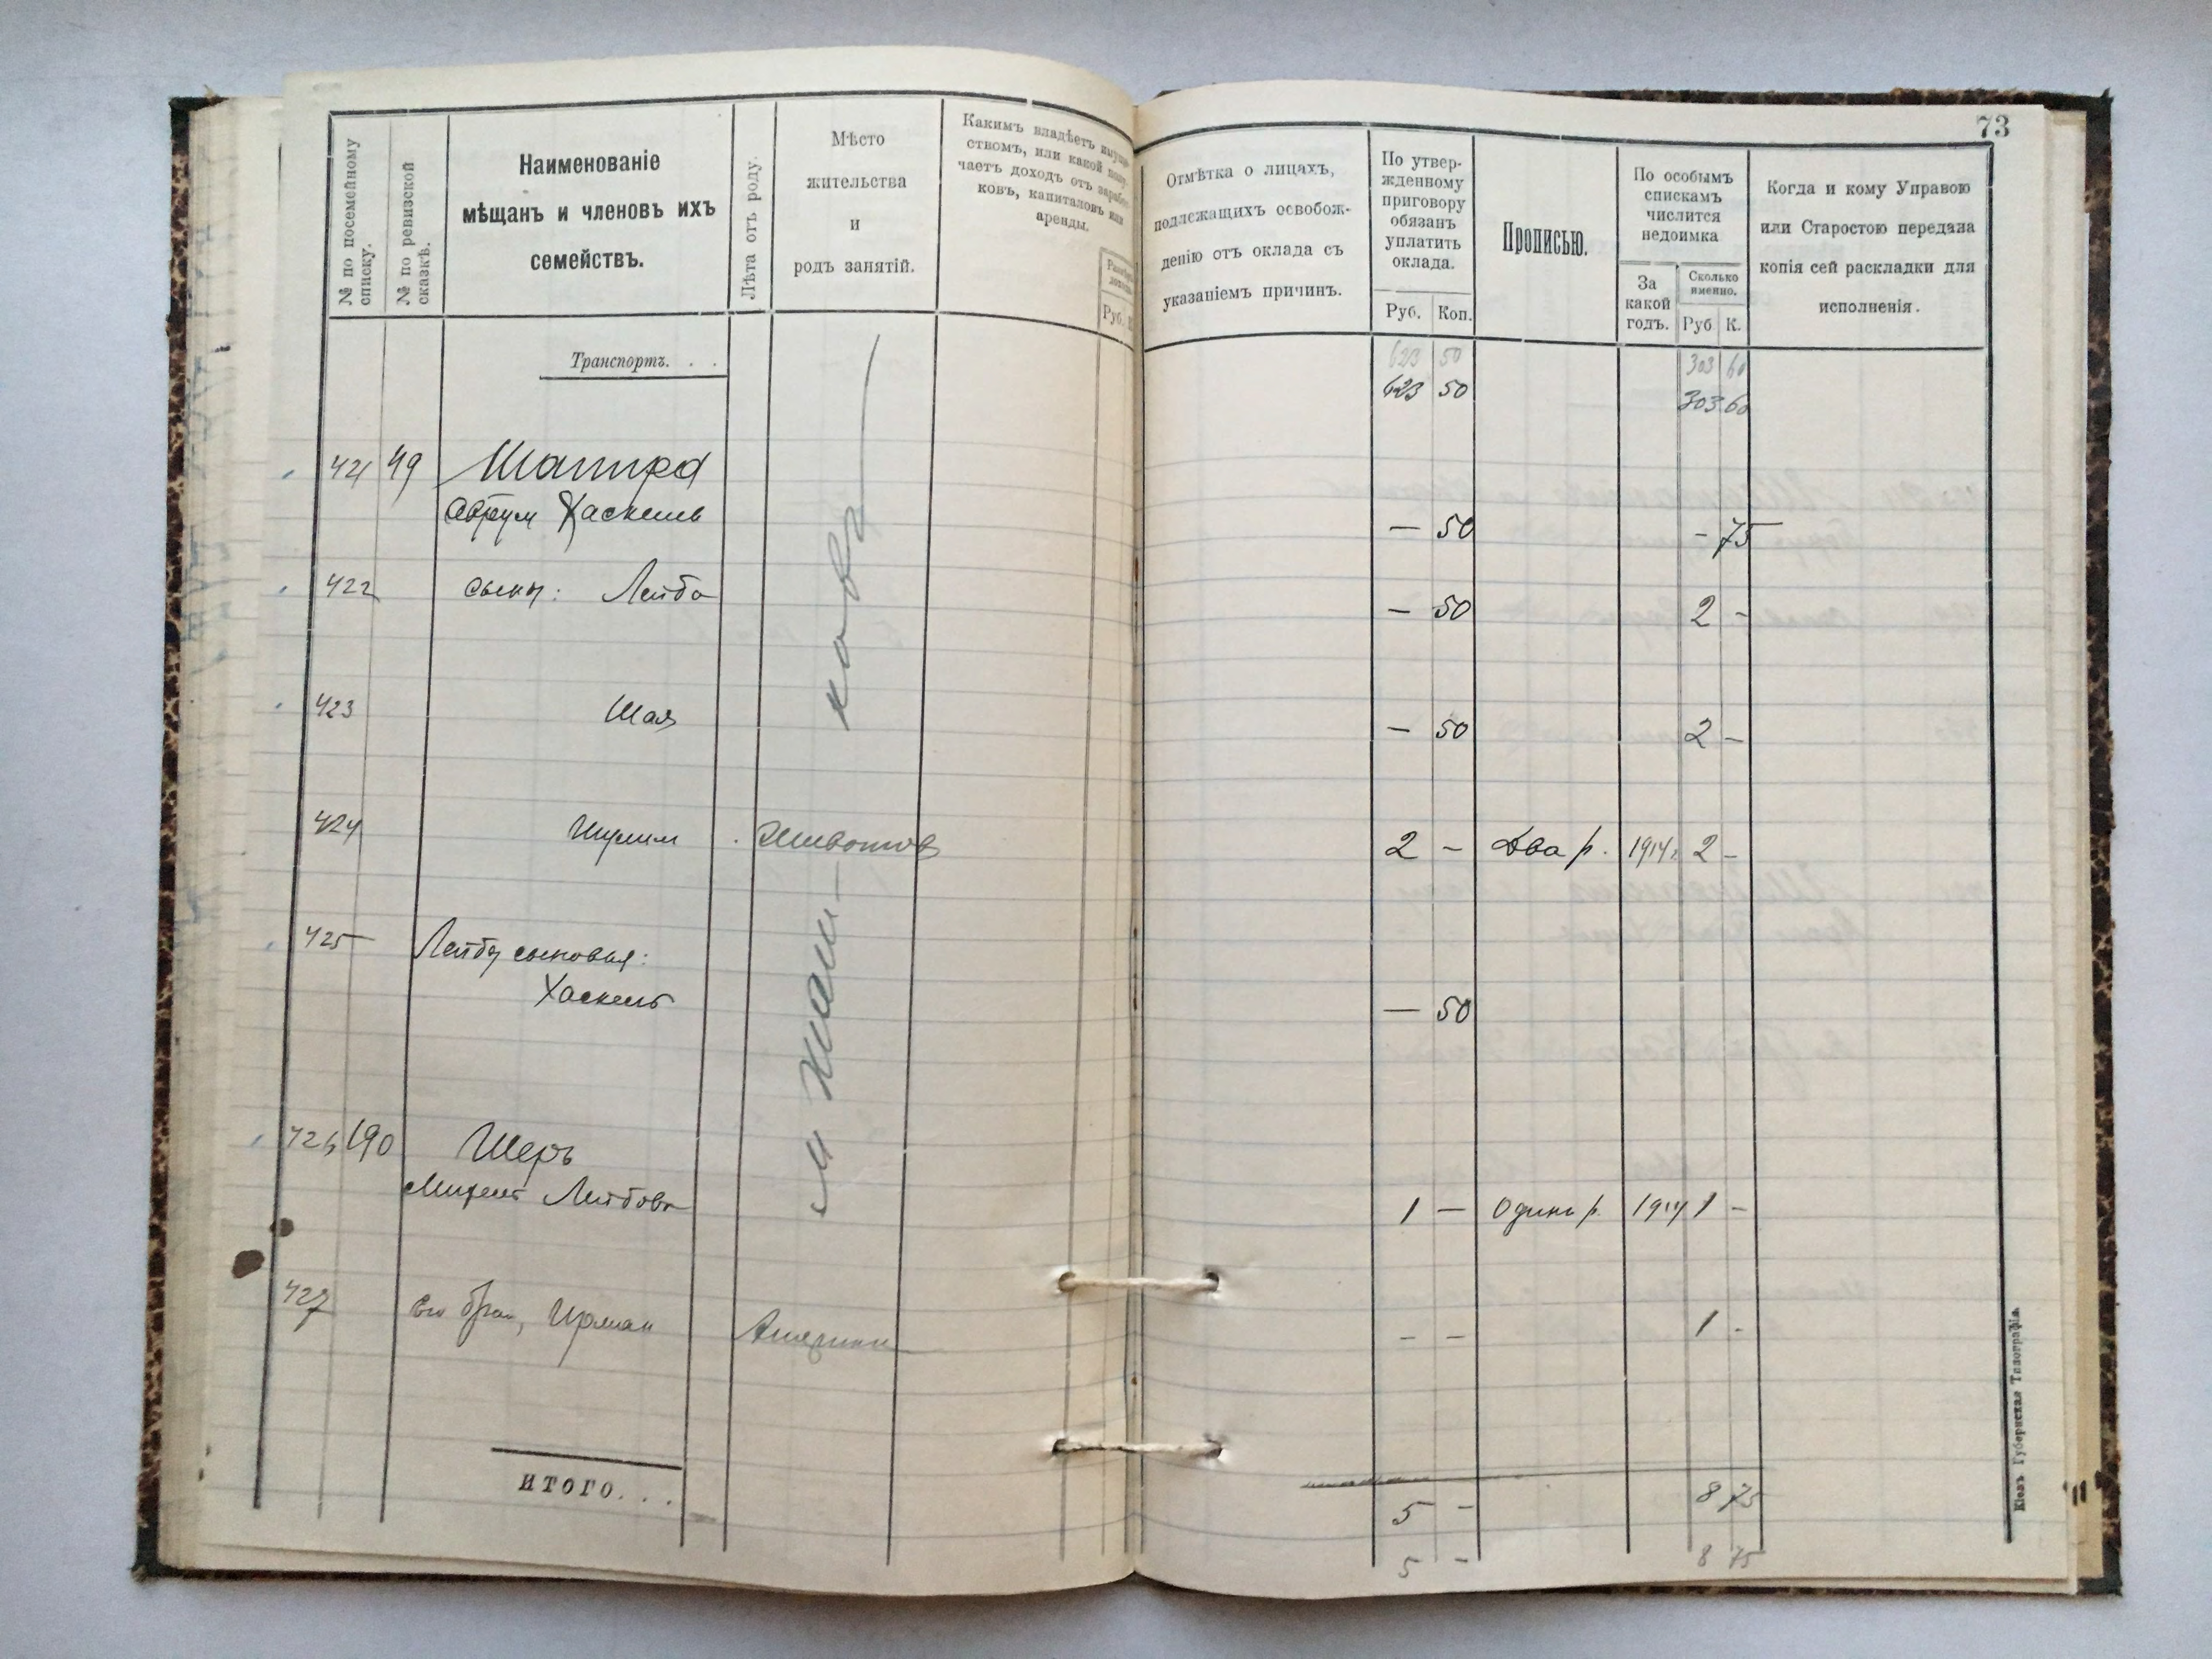 73
№ по посемейному списку.
№ по ревизской сказкѣ.
Наименованіе
мѣщанъ и членовъ ихъ
семействъ.
Лѣта отъ роду.
Мѣсто
жительства
и
родъ занятій.
Какимъ владѣетъ имуще-
ствомъ, или какой полу-
чаетъ доходъ отъ заработ-
ковъ, капиталовъ или
аренды.
Руб.
Отмѣтка о лицахъ,
подлежащихъ освобож-
денію отъ оклада съ
указаніемъ причинъ.
По утвер-
жденному
приговору
обязанъ
уплатить
оклада.
Руб. Коп.
Прописью.
По особымъ
спискамъ
числится
недоимка
За
какой
годъ.
Сколько
именно.
Руб К.
Когда и кому Управою
или Старостою передана
копія сей раскладки для
исполненія.
Транспортъ. . .
623 50 303 60
623 50 303 60
421 49 Шапира
Абрум Хаскель — 50 - 75
422 сыны: Лейба — 50 2 -
423 Шая — 50 2 —
424 Шулим Животов 2 - Два р. 1914 г 2 -
425 Лейбы сыновья:
Хаскель — 50
426 190 Шеръ
Лейбов 1 — Один р. 1914 1 -
427 Его брат, Америки - - 1 -
ИТОГО. . .
5 - 8 75
5 - 8 75
Кіевъ Губернская Типографія.